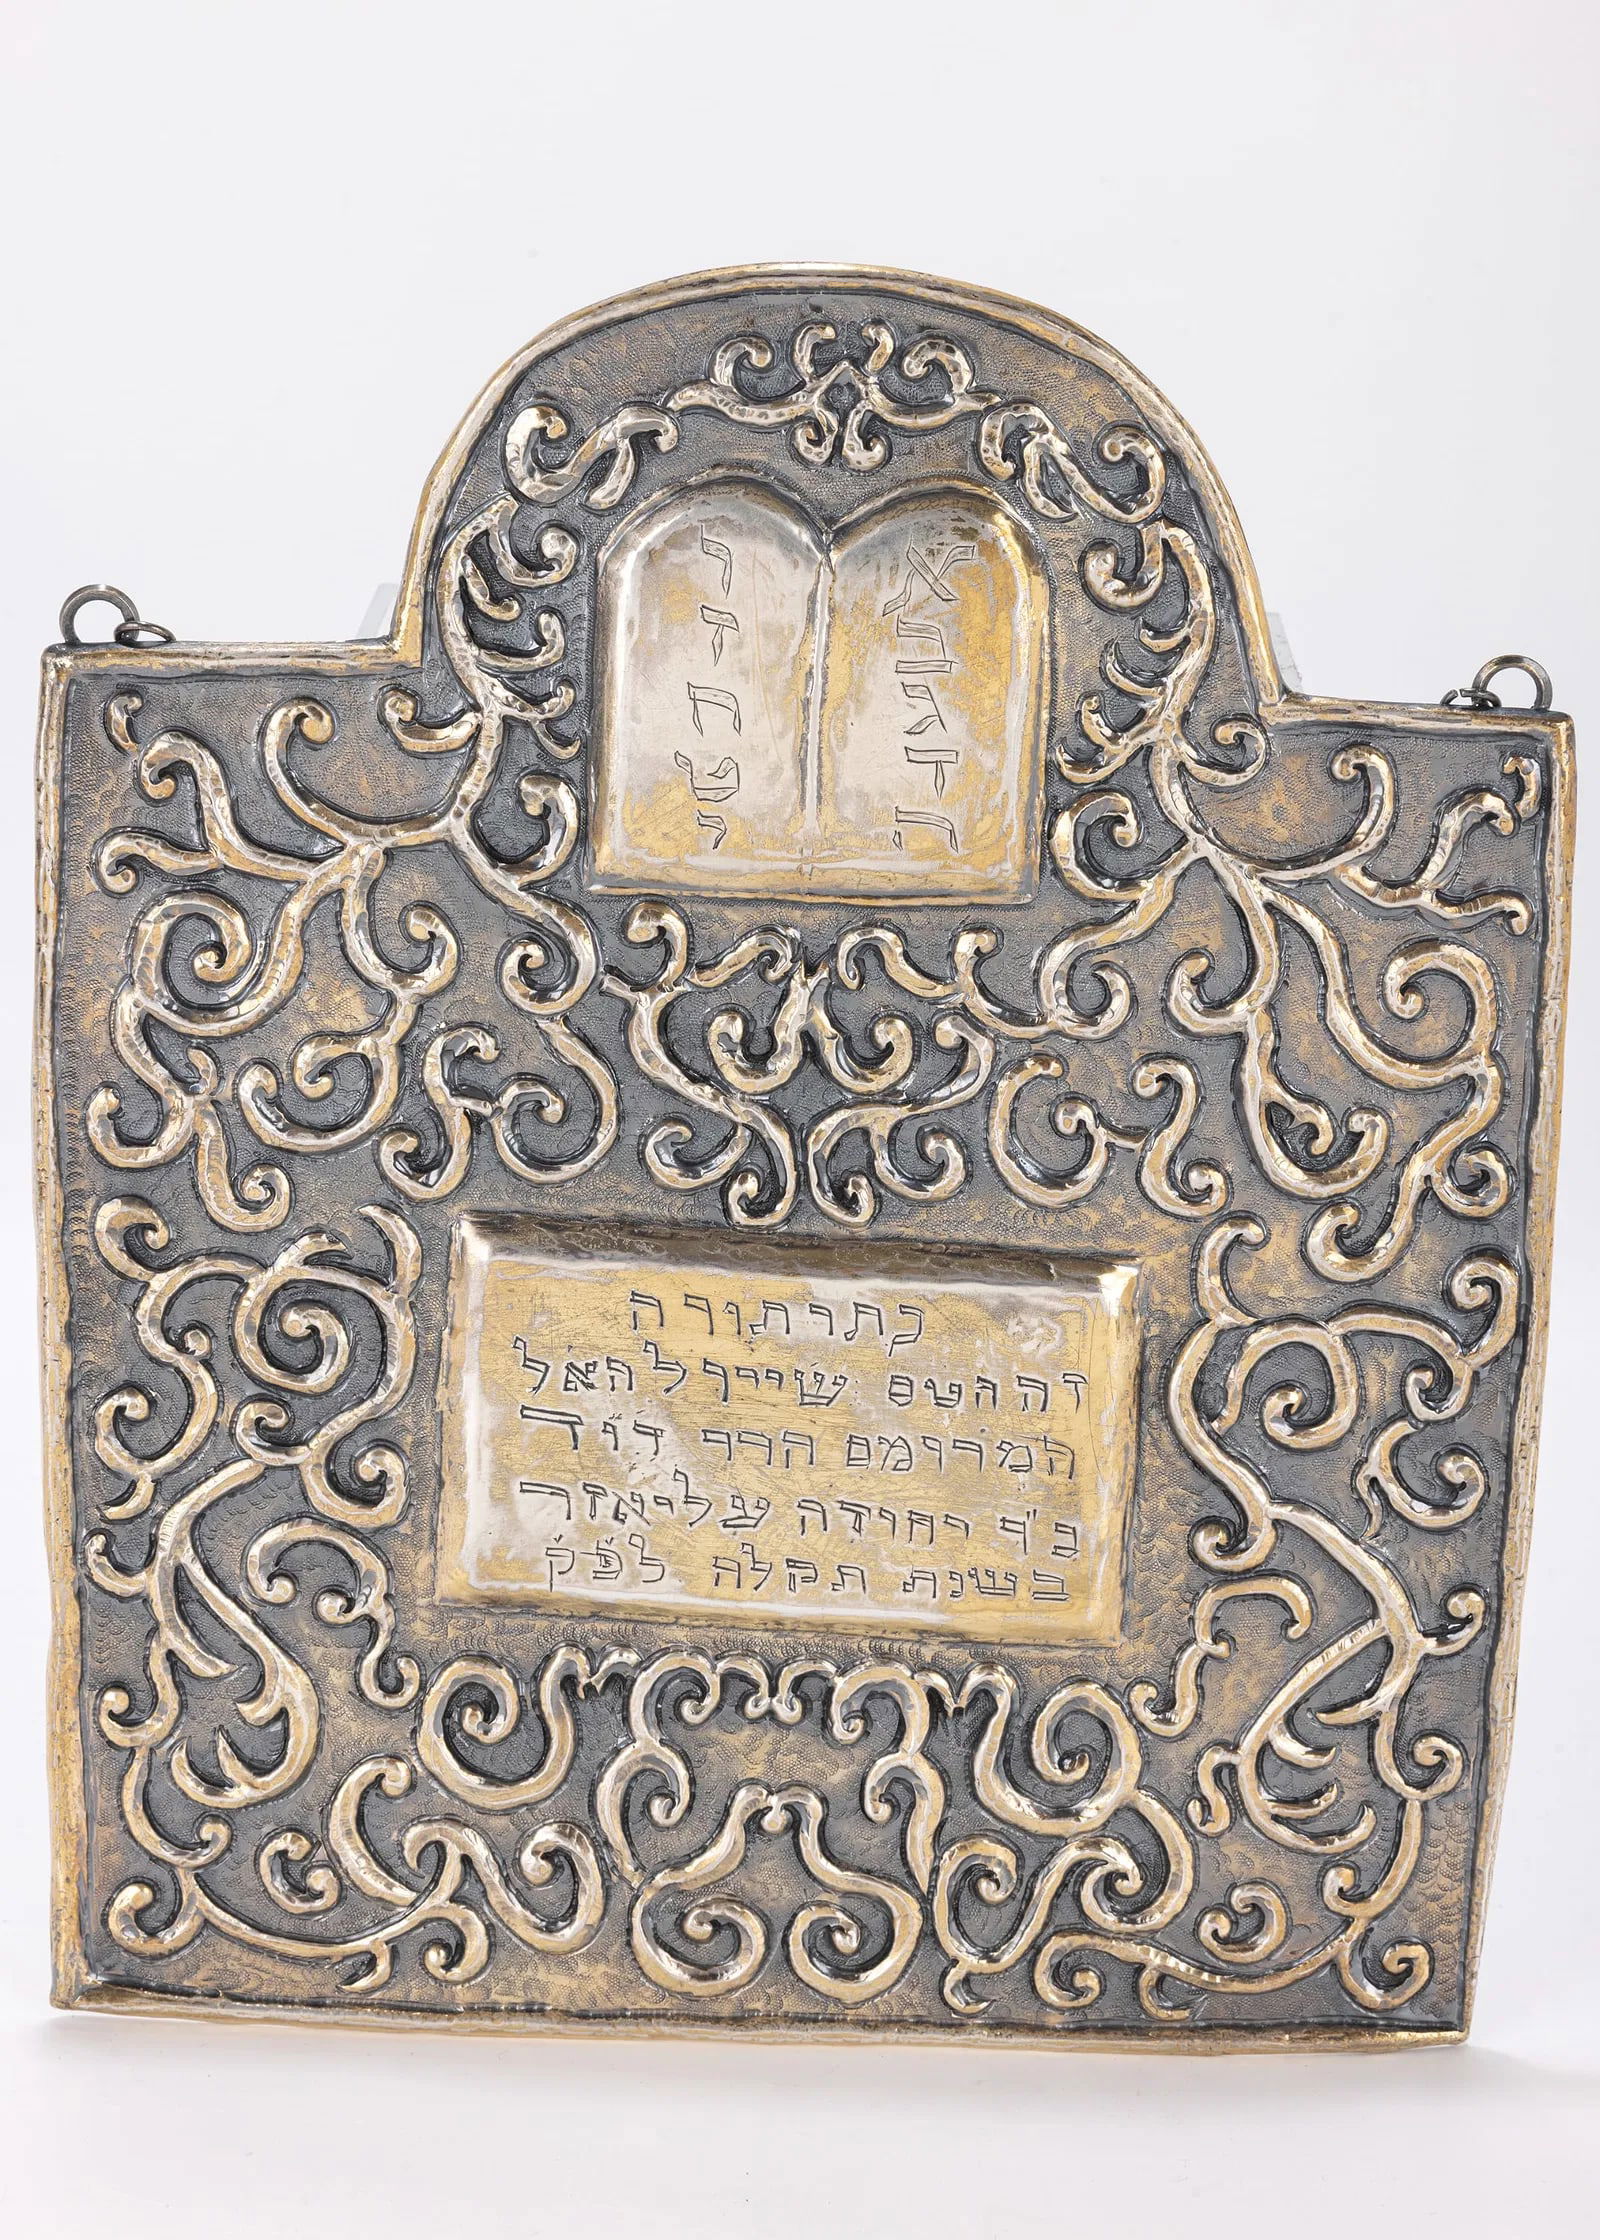 א
ב
ג
ד
ה
ו
ז
ח
ט
י
כתר תורה
זה הטס שייך להאל
המרומם הרר דוד
ב״ר יהודה עליאזר
בשנת תקלה לפ״ק